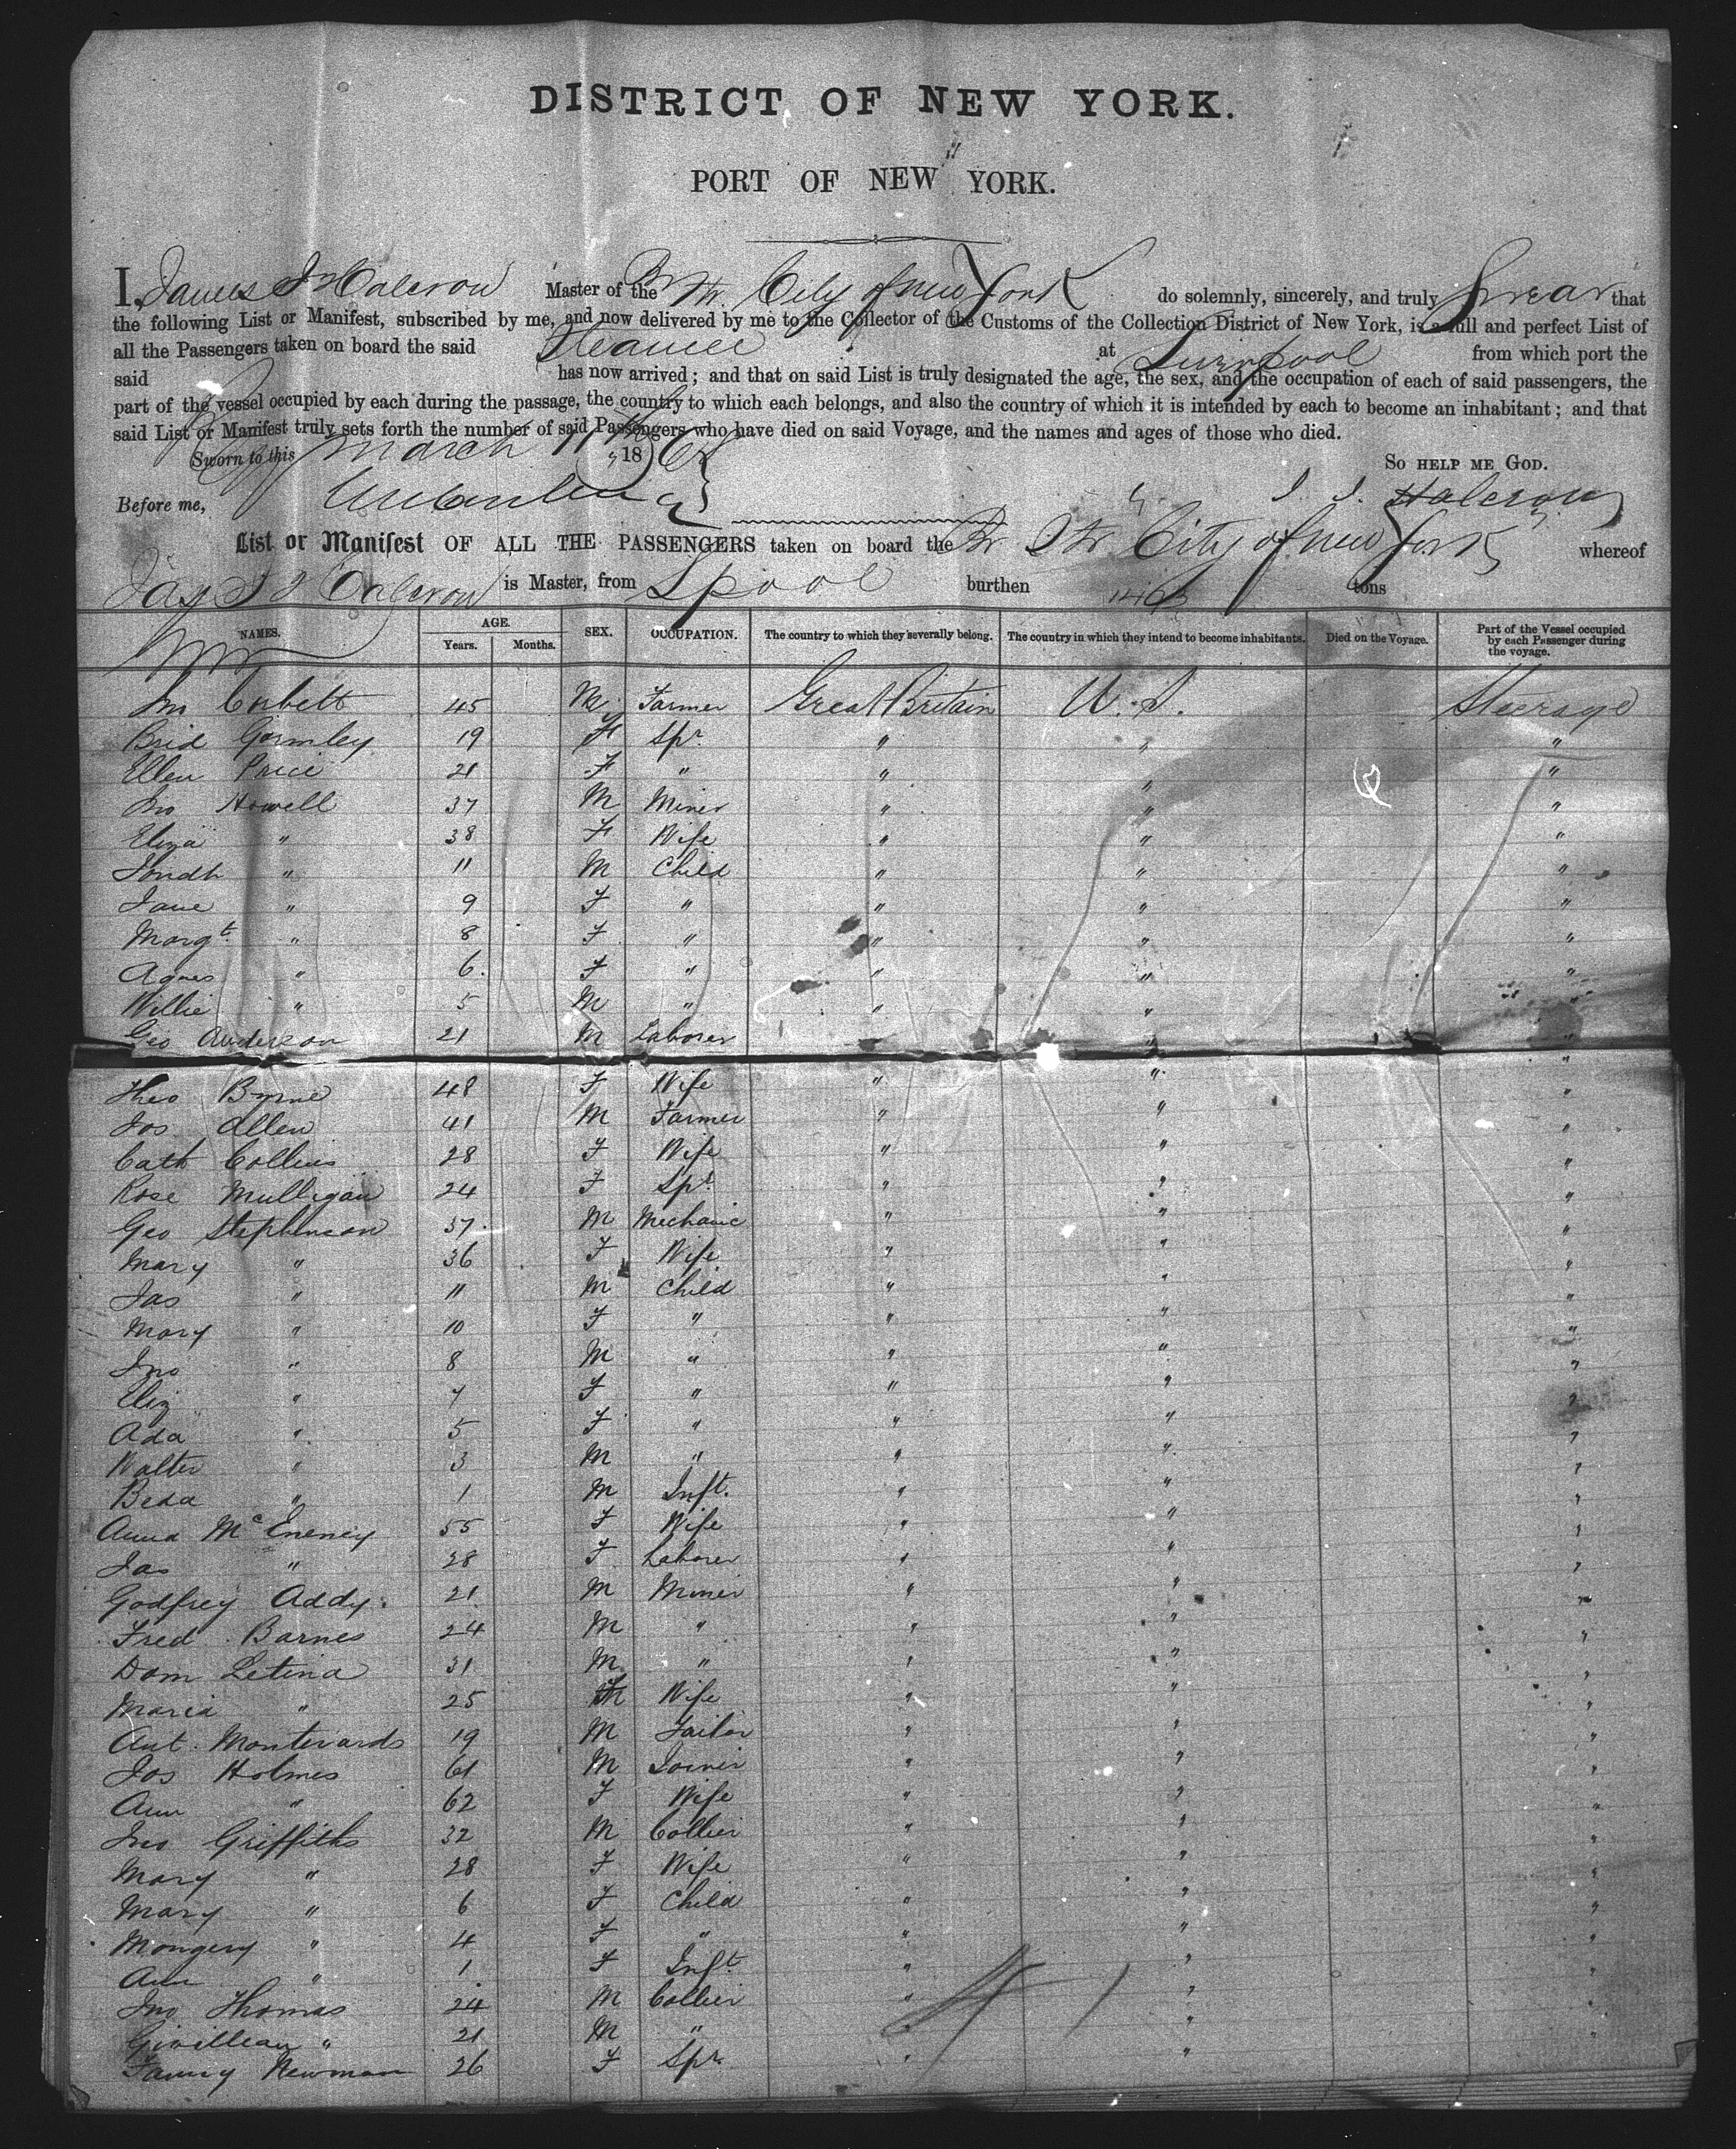 DISTRICT OF NEW YORK.
PORT OF NEW YORK.
I, James J Halcrow Master of the Br Str. City of New York do solemnly, sincerely, and truly Swear that
the following List or Manifest, subscribed by me, and now delivered by me to the Collector of the Customs of the Collection District of New York, is a full and perfect List of
all the Passengers taken on board the said Steamer at Liverpool from which port the
said has now arrived; and that on said List is truly designated the age, the sex, and the occupation of each of said passengers, the
part of the vessel occupied by each during the passage, the country to which each belongs, and also the country of which it is intended by each to become an inhabitant; and that
said List or Manifest truly sets forth the number of said Passengers who have died on said Voyage, and the names and ages of those who died.
Sworn to this March 11th 1868 SO HELP ME GOD.
Before me, J. J. Halcrow
List or Manifest OF ALL THE PASSENGERS taken on board the Br Str City of New York whereof
Jas J Halcrow is Master, from Lpool burthen tons
NAMES. AGE. Years. Months. SEX. OCCUPATION. The country to which they severally belong. The country in which they intend to become inhabitants. Died on the Voyage. Part of the Vessel occupied by each Passenger during the voyage.
Jno Corbett 45 M Farmer Great Britain U.S. Steerage
Brid Gormley 19 F Spr " " "
Ellen Price 21 F " " " "
Jno Howell 37 M Miner " " "
Eliza " 38 F Wife " " "
" 11 M Child " " "
Jane " 9 F " " " "
Margt " 8 F " " " "
Agnes " 6 F " " " "
Willie " 5 M " " " "
Geo Anderson 21 M Laborer " " "
Theo Byrne 48 F Wife " " "
Jos Allen 41 M Farmer " " "
Cath Collins 28 F Wife " " "
Rose Mulligan 24 F Spr " " "
Geo Stephenson 37 M Mechanic " " "
Mary " 36 F Wife " " "
Jas " 11 M Child " " "
Mary " 10 F " " " "
Jno " 8 M " " " "
Eliz " 7 F " " " "
Ada " 5 F " " " "
Walter " 3 M " " " "
Beda " 1 M Inft. " " "
Anna McEneney 55 F Wife " " "
Jas " 28 F Laborer " " "
Godfrey Addy 21 M Miner " " "
Fred Barnes 24 M " " " "
Dom Letina 31 M " " " "
Maria " 25 F Wife " " "
Ant. Montevards 19 M Tailor " " "
Jos Holmes 61 M Joiner " " "
Ann " 62 F Wife " " "
Jno Griffiths 32 M Collier " " "
Mary " 28 F Wife " " "
Mary " 6 F Child " " "
Mongery " 4 F " " " "
Ann " 1 F Inft " " "
Jno Thomas 24 M Collier " " "
" 21 M " " " "
Fanny Newman 26 F Spr " "